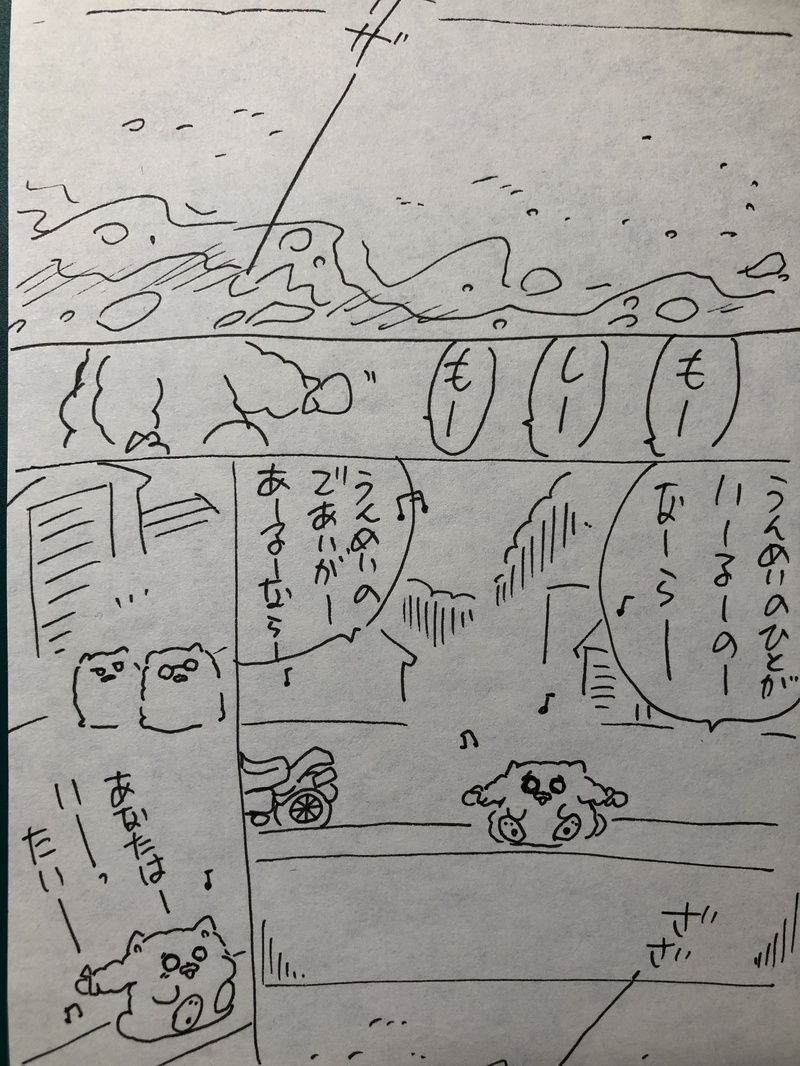 ザ
もー
しー
もー
うんめいのひとが
いーるーのー
なーらー
うんめいの
であいがー
あーるーならー
ザ
ザ
あなたはー
いーっ
たいー